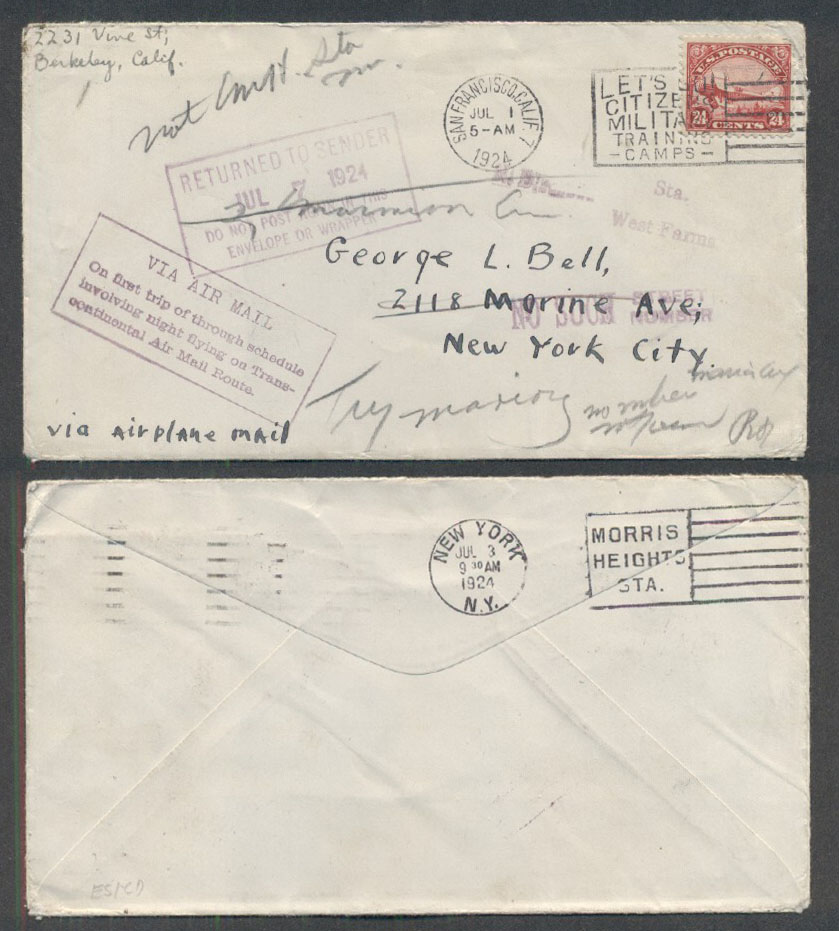 2231 Vine St;
Berkeley, Calif.
not Sta
SAN FRANCISCO, CALIF. 7
JUL 1
5-AM
1924
LET'S
CITIZE
MILITA
TRAINING
-CAMPS-
U.S. POSTAGE
24 CENTS 24
RETURNED TO SENDER
JUL 7 1924
DO NOT POST IN THIS
ENVELOPE OR WRAPPER
Sta.
West Farms
George L. Bell,
2118 Morine Ave;
New York City.
NO SUCH STREET
NUMBER
VIA AIR MAIL
On first trip of through schedule
involving night flying on Trans-
continental Air Mail Route.
via airplane mail
Try
no number
NEW YORK
JUL 3
9 30 AM
1924
N.Y.
MORRIS
HEIGHTS
STA.